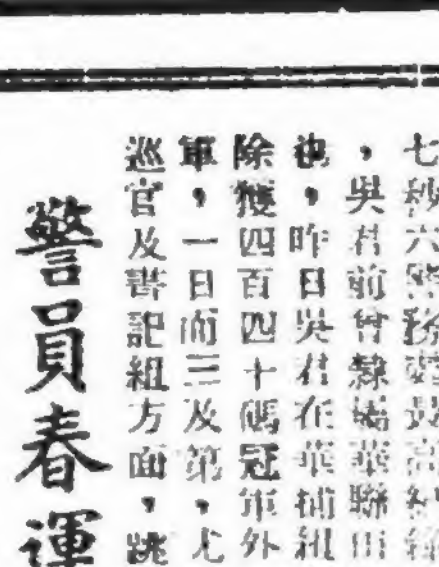 七秒六警務處最高紀錄
，吳君前曾隸楊華聯田
也，昨日吳君在華捕組
除獲四百四十碼冠軍外
軍，一日而三及第，尤
巡官及書記組方面，跳
警員春運